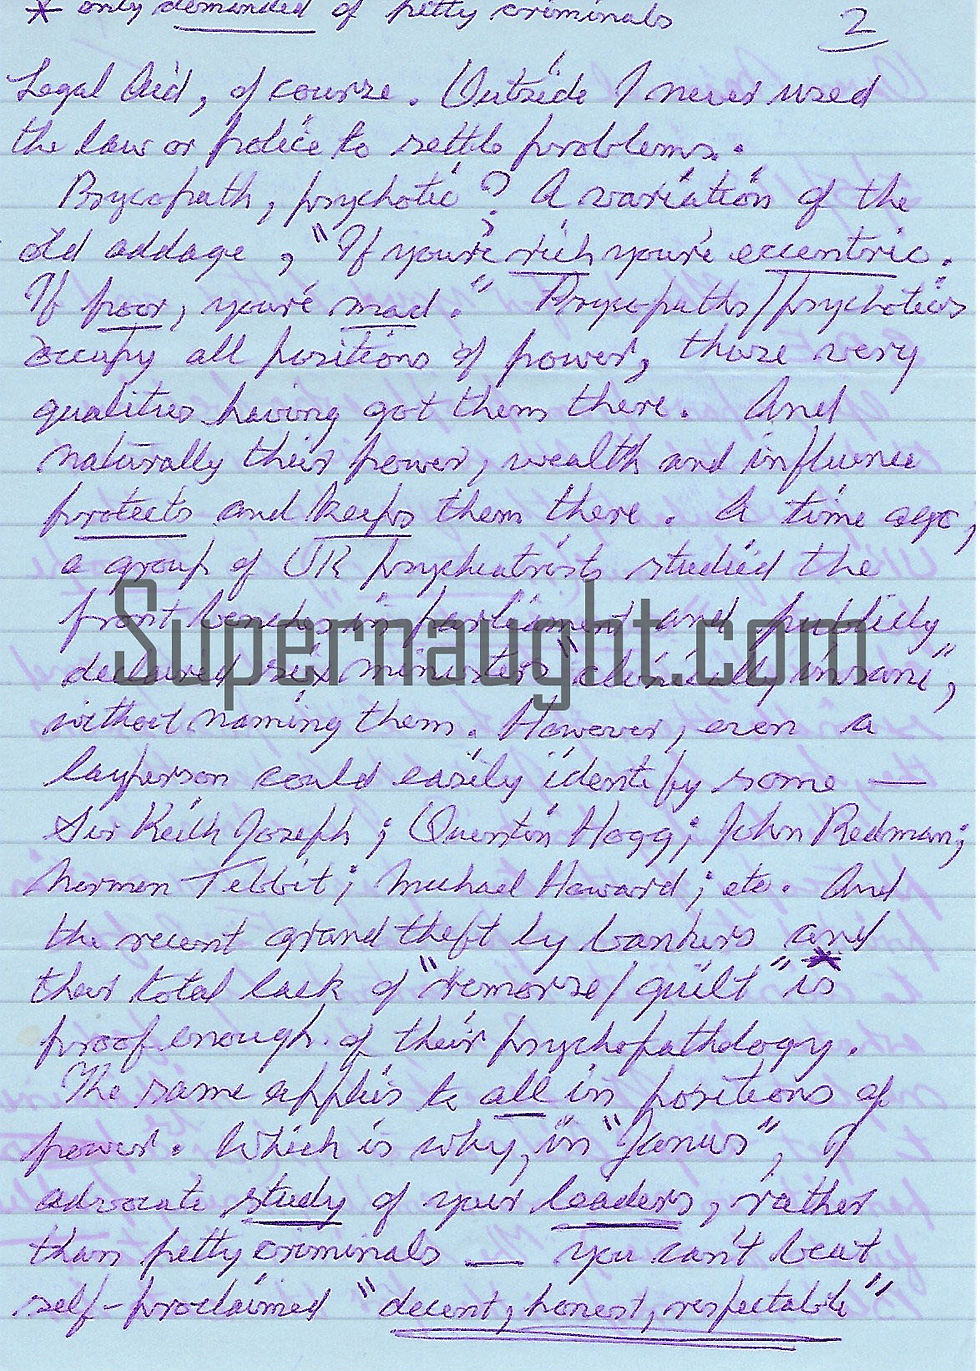 * only demanded of petty criminals
2
Legal Aid, of course. Outside I never used
the law or police to settle problems.
Psycopath, psychotic? A variation of the
old addage, "If you're rich you're eccentric.
If poor, you're mad." Psycopaths/psychotics
occupy all positions of power, those very
qualities having got them there. And
naturally their power, wealth and influence
protects and keeps them there. A time ago,
a group of UK psychiatrists studied the
front benches in parliament and publicly
declared six ministers "clinically insane",
without naming them. However, even a
layperson could easily identify some —
Sir Keith Joseph; Quentin Hogg; John Redman;
Norman Tebbit; Michael Howard; etc. And
the recent grand theft by bankers and
their total lack of "remorse/guilt" * is
proof enough of their psychopathology.
The same applies to all in positions of
power. Which is why, in "Janus", I
advocate study of your leaders, rather
than petty criminals — you can't beat
self-proclaimed "decent, honest, respectable"
Supernaught.com